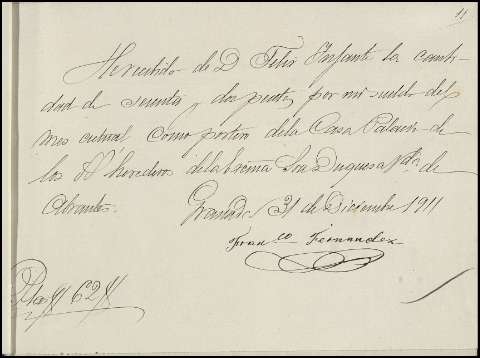 11
He recibido de D Felix Infante la canti-
dad de sesenta y dos pesetas por mi sueldo del
mes actual como portero de la Casa Palacio de
los herederos de la Excma Sra Duquesa Vda de
Abrantes.
Granada 31 de Diciembre 1911
Franco Fernandez
Ptas 62